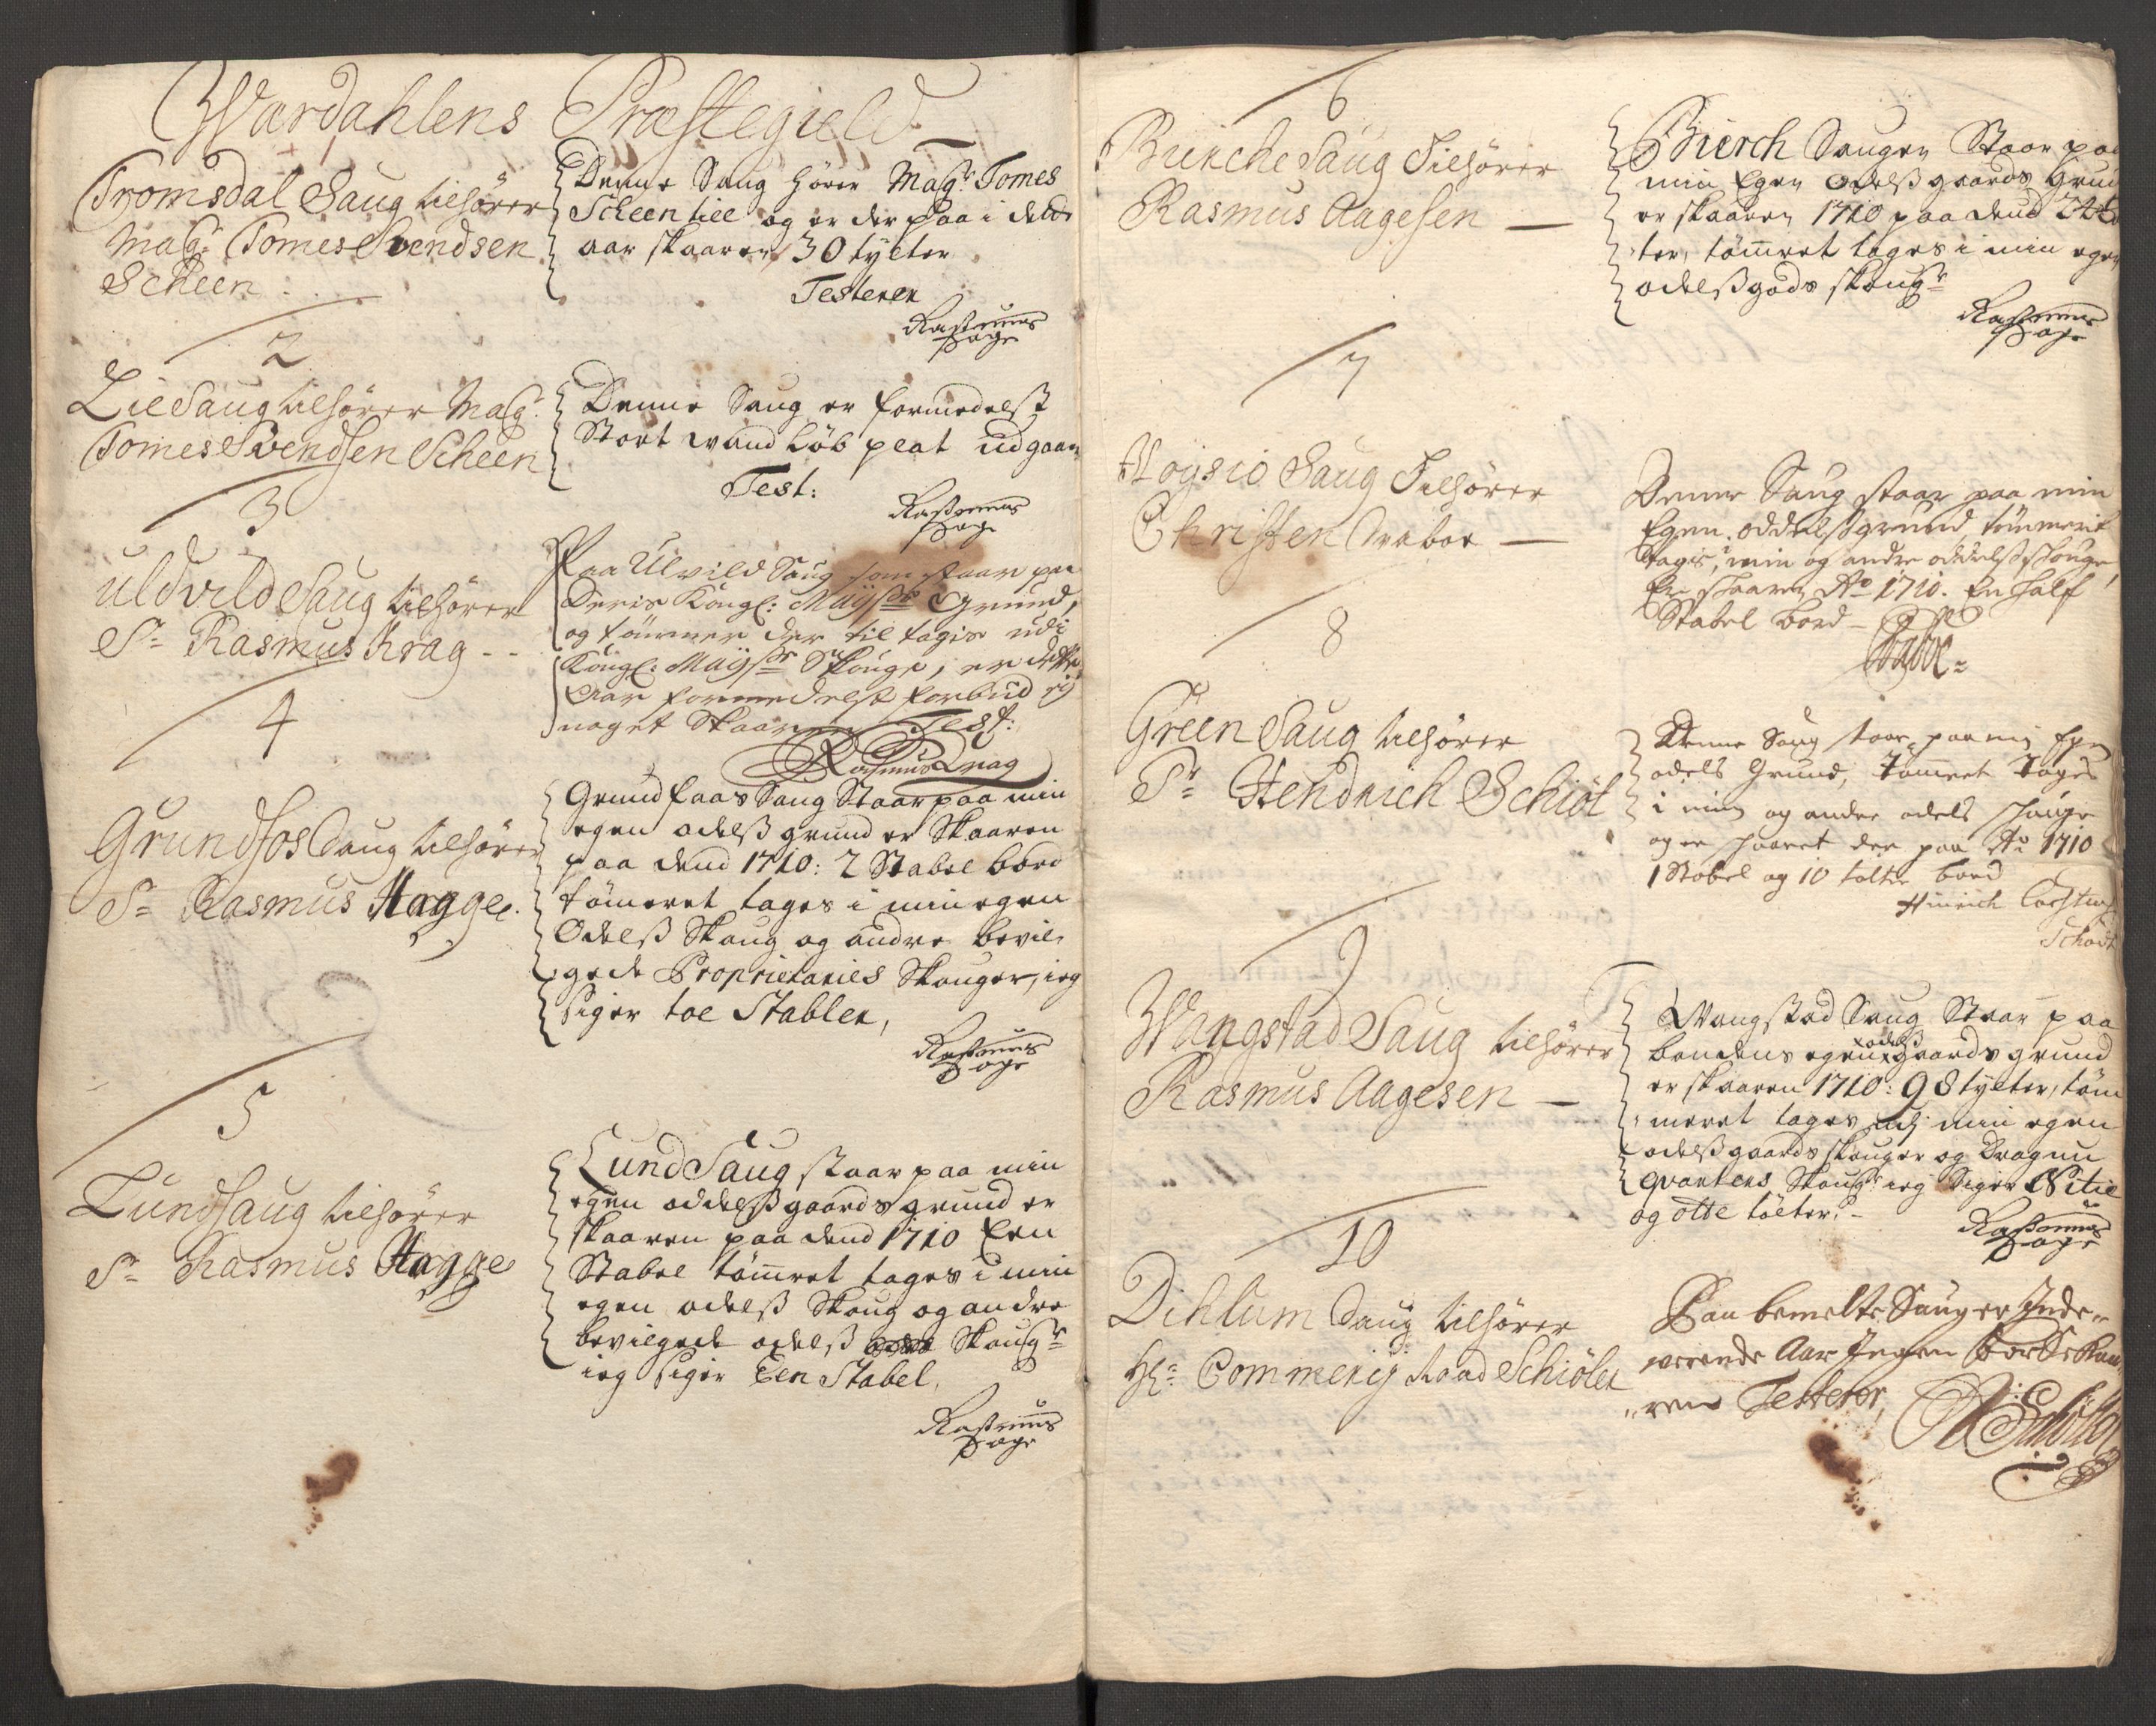 Wardahlens Præstegield
Tromsdal Saug tilhører
Mag: Tomes Svendsen
Scheen
Denne Saug hører Mag: Tomes
Scheen till og er der paa i dette
aar skaaren 30 tylter
Testerer
Rasmus
Hage
2
Lie Saug tilhører Mag:
Tomes Svendsen Scheen
Denne Saug er formedelst
Stort vand løb plat udgaan
Test:
Rasmus
Hage
3
Uldvild Saug tilhører
Sr Rasmus Krag
Paa Ulvild Saug som staar paa
Deris Kongl: Mayst Grund,
og tømmer der til tagis udi
Kongl: Mayst Skouge, er dette
Aar formedelst forbud ej
noget Skaaren Test:
Rasmus Krag
4
Grundfos Saug tilhører
Sr Rasmus Hagge
Grundfaas Saug Staar paa min
egen odelß grund er Skaaren
paa dend 1710: 2 Stabel bord
tømeret tages i min egen
Odelß Skoug og andre bevil,
gede Proprietaries Skouger, ieg
siger toe Stabler,
Rasmus
Hage
5
Lund Saug tilhører
Sr Rasmus Hagge
Lund Saug staar paa min
egen oddelß gaards grund er
skaaren paa dend 1710 Een
Stabel tømret tages i min
egen odelß Skoug og andre
bevilgede odelß Skougr
ieg siger Een Stabel,
Rasmus
Hage
6
Bierche Saug Tilhører
Rasmus Aagesen
Bierch Saugen Staar paa
min Egen odelß gaards Grun
er skaaren 1710 paa dend
ter, tømret tages i min egen
odelß gods skougr
Rasmus
Hage
7
Saug Tilhører
Christen
Denne Saug staar paa min
Egen oddelß grund, tømmerit
tagis i min og andre oddelß skouge,
Er skaaren Ao 1710. En half
Stabel bord
8
Green Saug tilhører
Sr Hendrich Schiøt
Denne Saug staar paa mig Egen
odels Grund, tømret Tages
i min og andre odels skouge
og er skaaret der paa Ao 1710
1 Stabel og 10 tolter bord
Hinrich
9
Wangstad Saug tilhører
Rasmus Aagesen
Wangstad Saug Staar paa
bondens egen odelß gaards grund
er skaaren 1710: 98 tylter, tøm
meret tages udj min egen
odelß gaards skouger og Dragun
qvarters Skougr ieg Siger Nitie
og otte tolter.
Rasmus
Hage
10
Dihlum Saug tilhører
Hr Commerij Raad Schiøler
Paa bemelte Saug er Inde„
værende Aar Ingen bord Skaa
„ren Testerer,